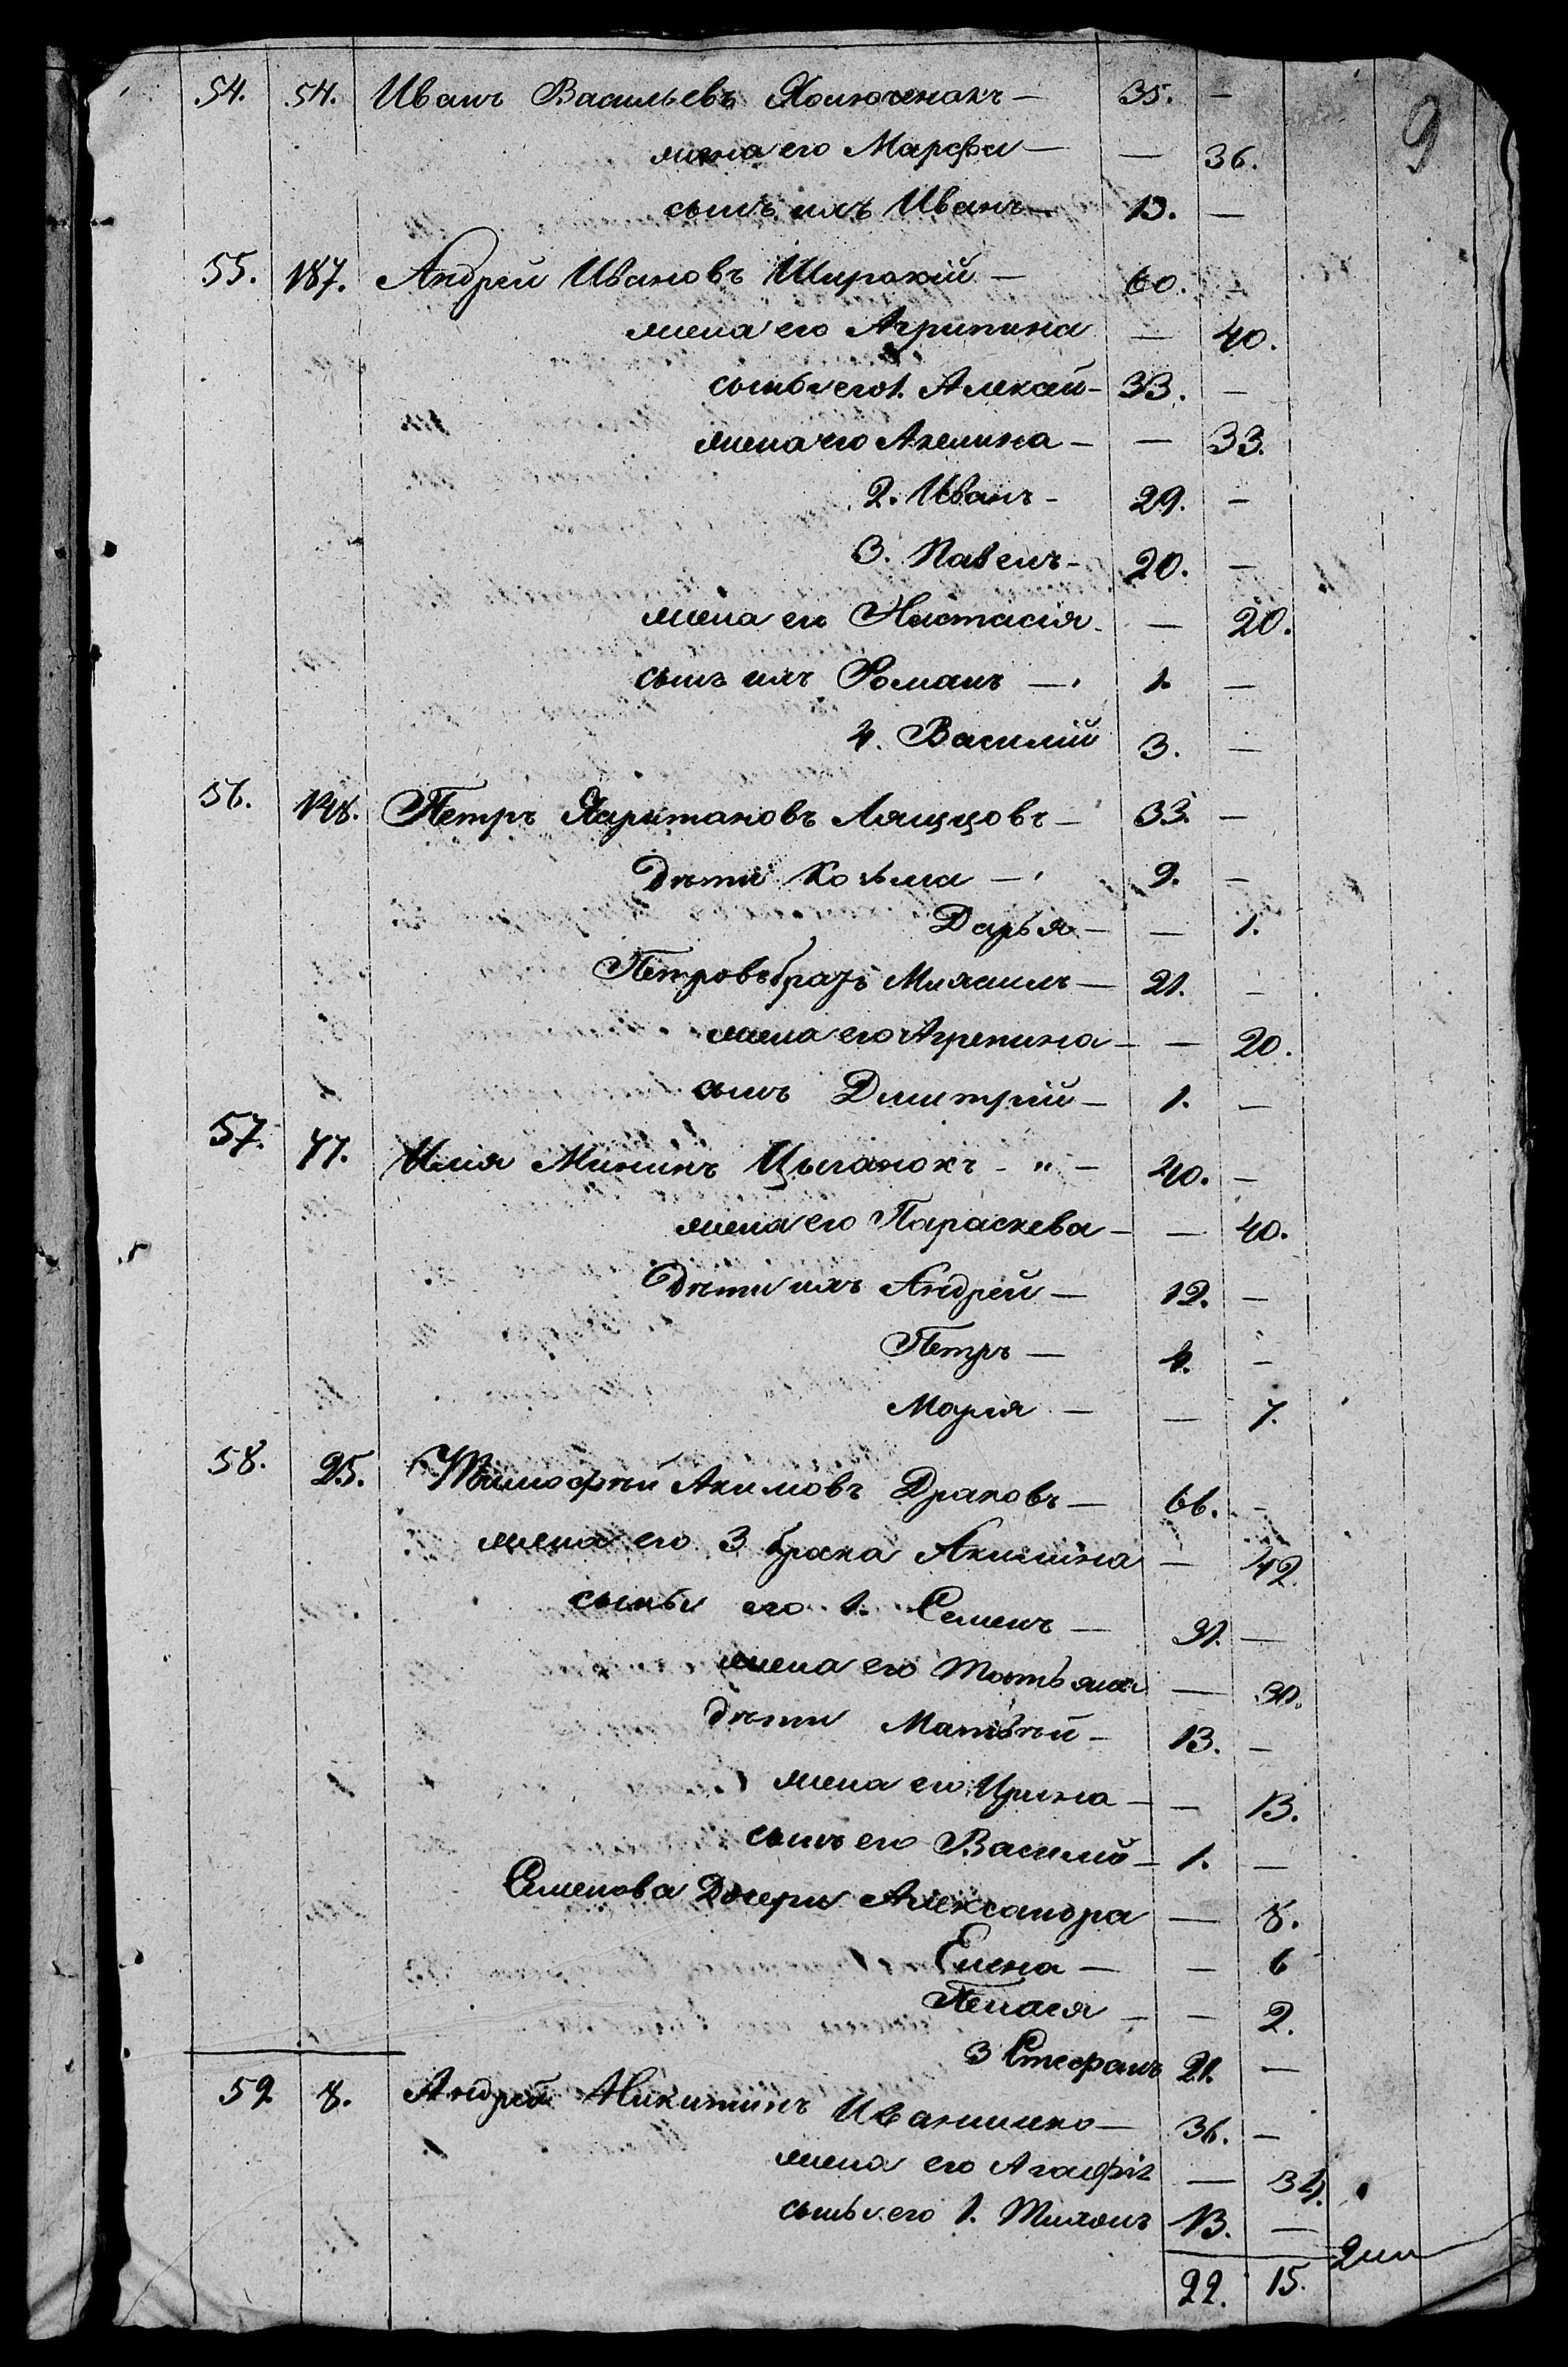 9
54. 54. Иванъ Васильевъ Холюченокъ — 35. —
жена его Марфа — — 36.
сынъ ихъ Иванъ — 13. —
55. 187. Андрей Ивановъ Широкій — 60. —
жена его Агрипина — 40.
сыновья его 1. Алексѣй — 33. —
жена его Акелина — — 33.
2. Иванъ — 29. —
3. Павелъ — 20. —
жена его Настасія — 20.
сынъ ихъ Романъ — 1. —
4. Василій 3. —
56. 148. Петръ Харитановъ Лящцовъ — 33. —
Дѣти Козьма — 9. —
Дарья — — 1.
Петровъ братъ Михаилъ — 21. —
жена его Агрепина — — 20.
сынъ Димитрій — 1. —
57. 77. Илія Мининъ Цыганокъ - " — 40. —
жена его Параскева — — 40.
Дѣти ихъ Андрей — 12. —
Петръ — 4. —
Марія — — 7.
58. 25. Тимофѣй Акимовъ Драковъ — 66. —
жена его 3 брака Акилина — 42.
сыновья его 1. Семенъ — 31. —
жена его Татьяна — 30.
дѣти Матвѣй — 13. —
жена его Ирина — — 13.
сынъ его Василій — 1. —
Семенова Дочери Александра — 8.
Елена — — 6
Пелагея — — 2.
3 Стефанъ 21. —
59 8. Андрей Никитинъ Иванишко — 36. —
жена его Агафія — 34.
сыновья его 1. Тихонъ 13. —
22. 15.